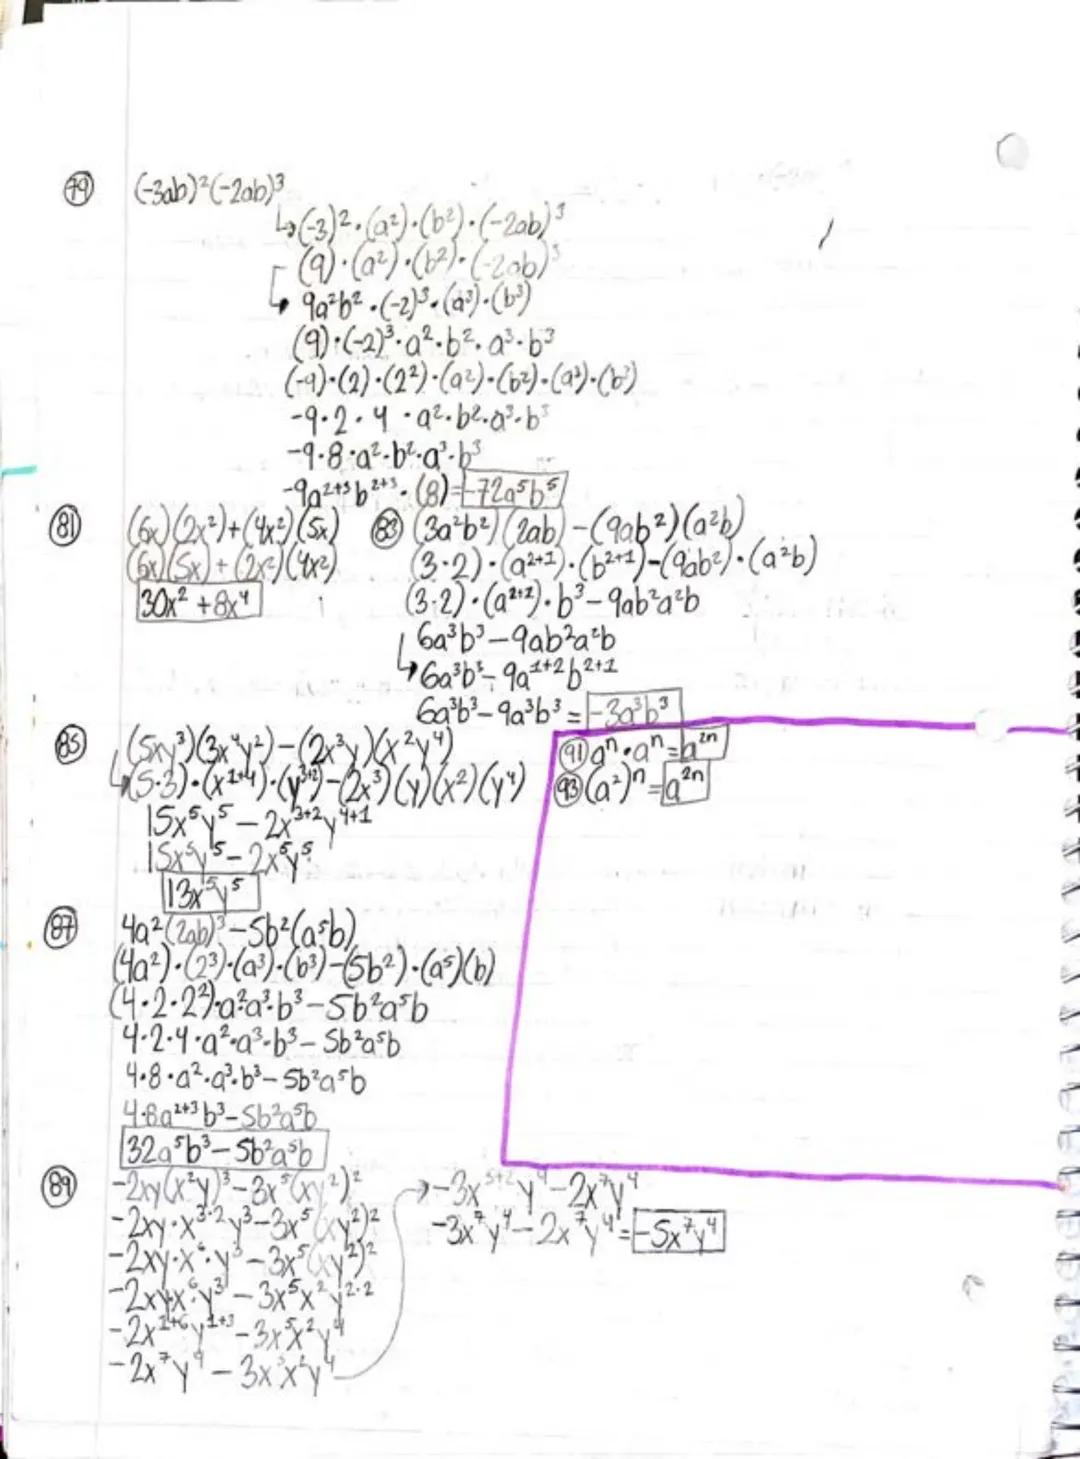 79 (-3ab)²(-2ab)³
↳(-3)²·(a²)·(b²)·(-2ab)³
(9)·(a²)·(b²)·(-2ab)³
9a²b²·(-2)³·(a³)·(b³)
(9)·(-2)³·a²·b²·a³·b³
(-9)·(2)·(2²)·(a²)·(b²)·(a³)·(b³)
-9·2·4·a²·b²·a³·b³
-9·8·a²·b²·a³·b³
-9a²⁺³b²⁺³·(8)=-72a⁵b⁵
81 (6x)(2x²)+(4x²)(5x)
(6x)(5x)+(2x²)(4x²)
30x²+8x⁴
83 (3a²b²)(2ab)-(9ab²)(a²b)
(3·2)·(a²⁺¹)·(b²⁺¹)-(9ab²)·(a²b)
(3·2)·(a²⁺¹)·b³-9ab²a²b
6a³b³-9ab²a²b
↳6a³b³-9a¹⁺²b²⁺¹
6a³b³-9a³b³=-3a³b³
85 (5xy³)(3x⁴y²)-(2x³y)(x²y⁴)
↳(5·3)·(x¹⁺⁴)·(y³⁺²)-(2x³)(y)(x²)(y⁴)
15x⁵y⁵-2x³⁺²y⁴⁺¹
15x⁵y⁵-2x⁵y⁵
13x⁵y⁵
91 aⁿ·aⁿ=a²ⁿ
93 (a²)ⁿ=a²ⁿ
87 4a²(2ab)³-5b²(a⁵b)
(4a²)·(2³)·(a³)·(b³)-(5b²)·(a⁵)(b)
(4·2·2²)·a²a³·b³-5b²a⁵b
4·2·4·a²·a³·b³-5b²a⁵b
4·8·a²·a³·b³-5b²a⁵b
4·8a²⁺³b³-5b²a⁵b
32a⁵b³-5b²a⁵b
89 -2xy(x²y)³-3x⁵(xy²)²
-2xy·x³·²y³-3x⁵(xy²)²
-2xy·x⁶·y³-3x⁵(xy²)²
-2xyx⁶y³-3x⁵x²y²·²
-2x¹⁺⁶y¹⁺³-3x⁵x²y⁴
-2x⁷y⁴-3x⁵x²y⁴
→-3x⁵⁺²y⁴-2x⁷y⁴
-3x⁷y⁴-2x⁷y⁴=-5x⁷y⁴